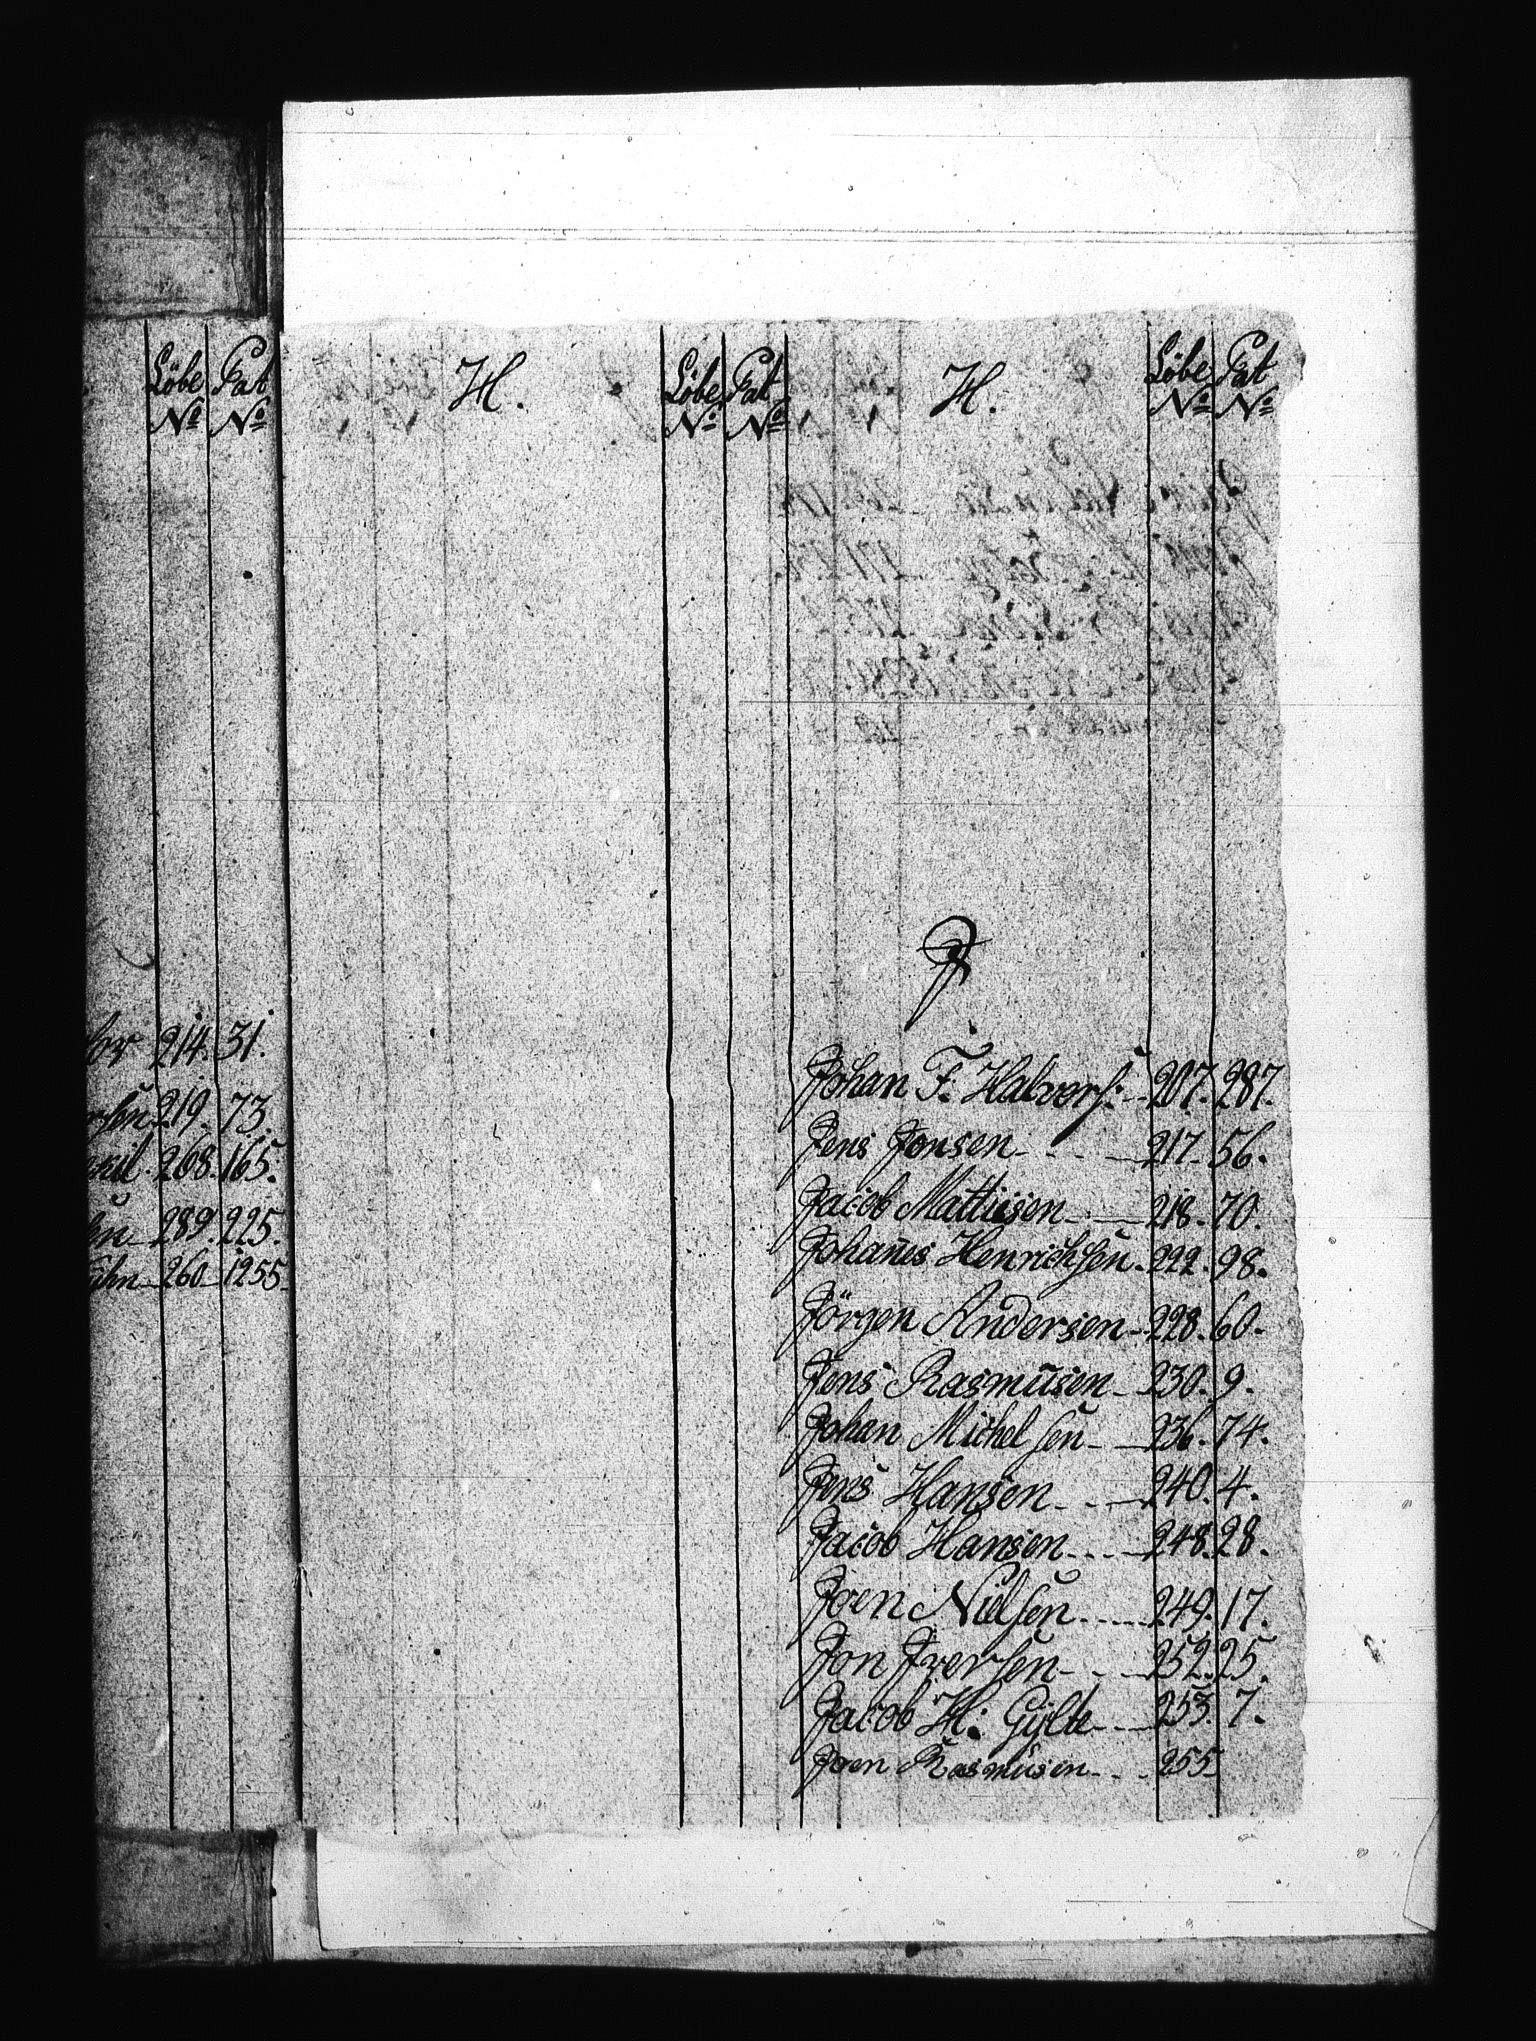 Löbe Pat
No No
214. 31.
219. 73.
268. 165.
289. 225.
260 1255.
H. Löbe Pat
No No
H. Löbe Pat
No No
J
Johan F: Halvors: 207. 287.
Jens Jonsen 217. 56.
Jacob Mattiesen 218. 70.
Johan̄es Henrichsen 222. 98.
Jörgen Andersen 228. 60.
Jens Rasmusen 230. 9.
Johan Michelsen 236. 74.
Jens Hansen 240. 4.
Jacob Hansen 248. 28.
Joen Nielsen 249. 17.
Jon Iversen 252. 25.
Jacob H: Gylte 253. 7.
Joen Rasmusen 255